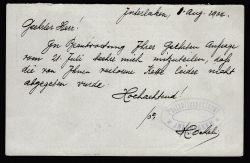 Interlaken, 8. Aug. 1902.
Geehrter Herr.
In Beantwortung Ihrer Geehrten Anfrage
vom 21 Juli teile mich mitzuteilen, daß
die von Ihnen verlorene Kette leider nicht
abgegeben wurde.
Hochachtend!